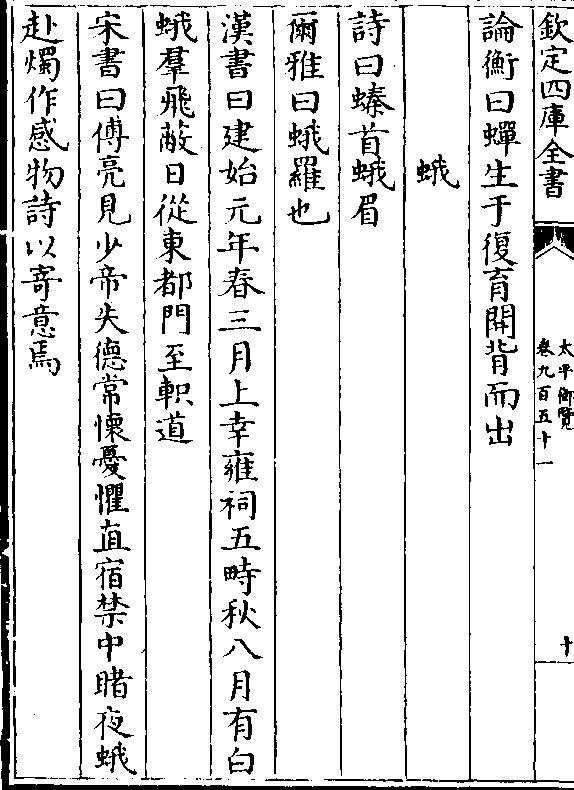 欽定四庫全書
太平御覽
卷九百五十一
十
論衡曰蟬生于復育開背而出
蛾
詩曰螓首蛾眉
爾雅曰蛾羅也
漢書曰建始元年春三月上幸雍祠五畤秋八月有白
蛾羣飛蔽日從東都門至軹道
宋書曰傅亮見少帝失德常懷憂懼直宿禁中睹夜蛾
赴燭作感物詩以寄意焉